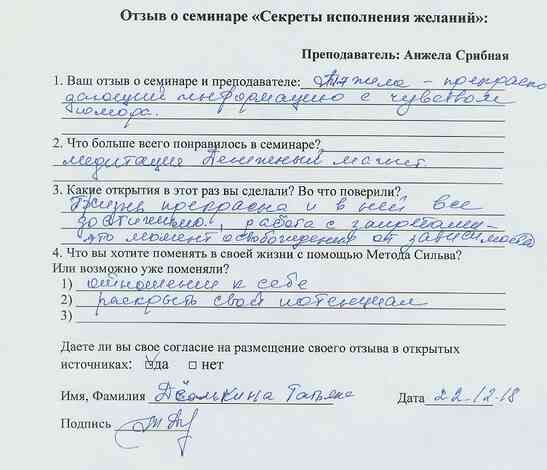 Отзыв о семинаре «Секреты исполнения желаний»:
Преподаватель: Анжела Срибная
1. Ваш отзыв о семинаре и преподавателе: Анжела - прекрасно
дающий информацию с чувством
юмора.
2. Что больше всего понравилось в семинаре?
медитация Денежный магнит.
3. Какие открытия в этот раз вы сделали? Во что поверили?
Жизнь прекрасна и в ней все
достижимо., работа с запретами -
это момент освобождения от зависимости
4. Что вы хотите поменять в своей жизни с помощью Метода Сильва?
Или возможно уже поменяли?
1) отношения к себе
2) раскрыть свой потенциал
3)
Даете ли вы свое согласие на размещение своего отзыва в открытых
источниках: да нет
Имя, Фамилия Татьяна Дата 22.12.18
Подпись